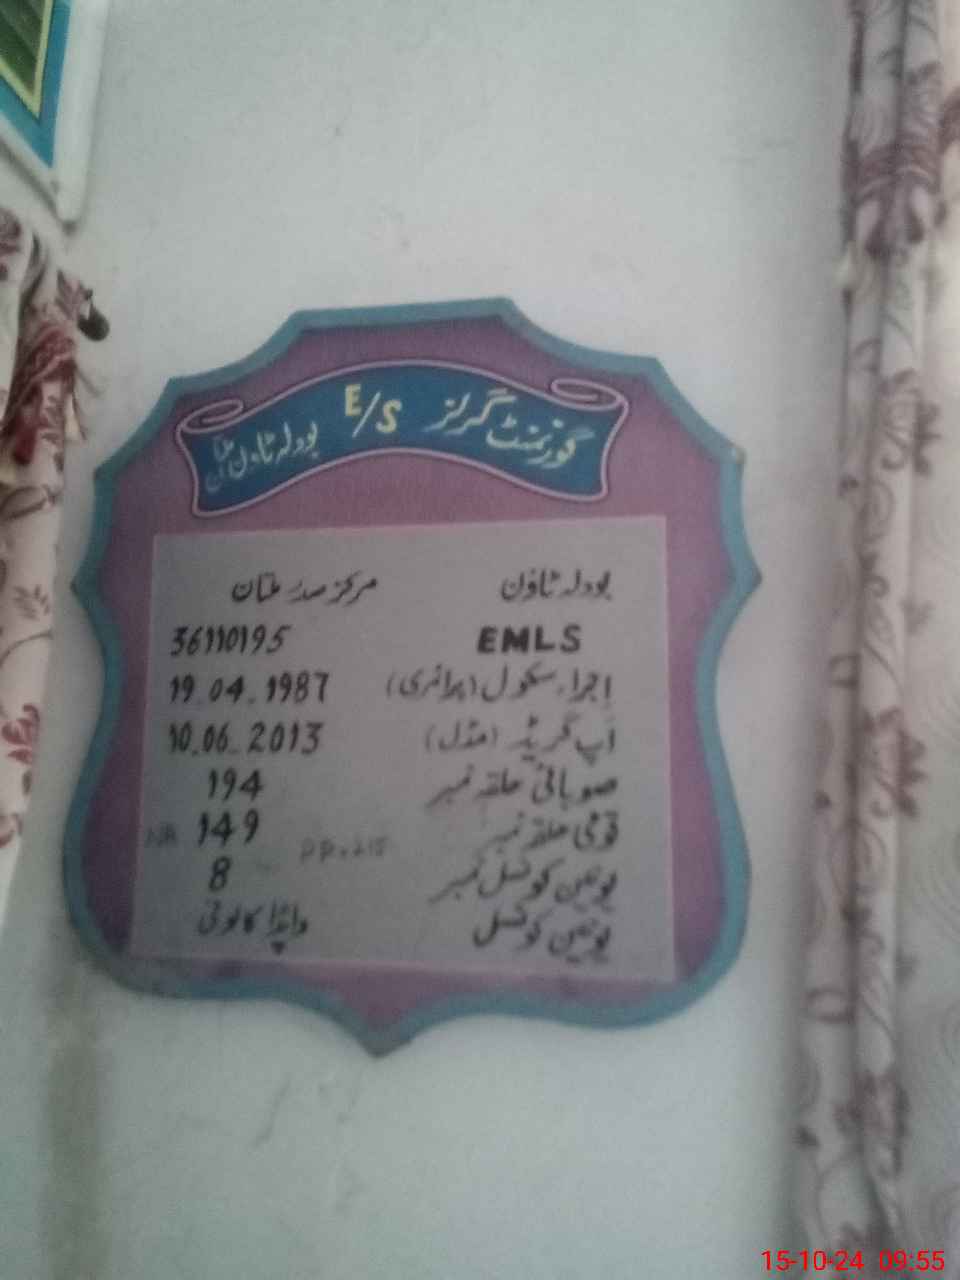 گورنمنٹ گرلز E/S بودلہ ٹاؤن ملتان
بودلہ ٹاؤن مرکز صدر ملتان
EMLS 36110195
اجراء سکول (پرائمری) 19.04.1987
اپ گریڈ (مڈل) 10.06.2013
صوبائی حلقہ نمبر 194
قومی حلقہ نمبر 149 NA
PP-215
یونین کونسل نمبر 8
یونین کونسل واپڈا کالونی
15-10-24 09:55